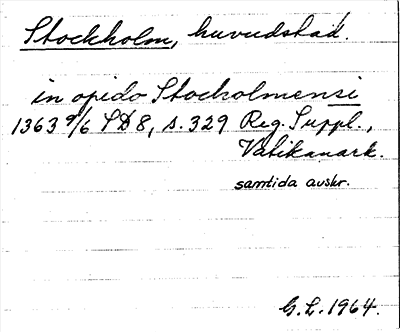 Stockholm, huvudstad.
in opido Stocholmensi
1363 9/6 SD 8, s. 329 Reg. Suppl.,
Vatikanark.
samtida avskr.
G.L. 1964.